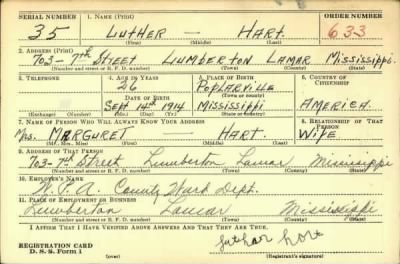 SERIAL NUMBER 1. NAME (Print) ORDER NUMBER
35 LUTHER — HART. 633
(First) (Middle) (Last)
2. ADDRESS (Print)
703-7th STREET LUMBERTON LAMAR MISSISSIPPI.
(Number and street or R. F. D. number) (Town) (County) (State)
3. TELEPHONE 4. AGE IN YEARS 5. PLACE OF BIRTH 6. COUNTRY OF CITIZENSHIP
26 POPLARVILLE
DATE OF BIRTH (Town or county)
SEPT 14th 1914 MISSISSIPPI AMERICA.
(Exchange) (Number) (Mo.) (Day) (Yr.) (State or country)
7. NAME OF PERSON WHO WILL ALWAYS KNOW YOUR ADDRESS 8. RELATIONSHIP OF THAT PERSON
Mrs. MARGURET — HART. WIFE
(Mr., Mrs., Miss) (First) (Middle) (Last)
9. ADDRESS OF THAT PERSON
703-7th Street Lumberton Lamar Mississippi
(Number and street or R. F. D. number) (Town) (County) (State)
10. EMPLOYER'S NAME
W. P. A. County Ward Dept.
11. PLACE OF EMPLOYMENT OR BUSINESS
Lumberton Lamar Mississippi
(Number and street or R. F. D. number) (Town) (County) (State)
I AFFIRM THAT I HAVE VERIFIED ABOVE ANSWERS AND THAT THEY ARE TRUE.
REGISTRATION CARD
D. S. S. Form 1 (over) (Registrant's signature)